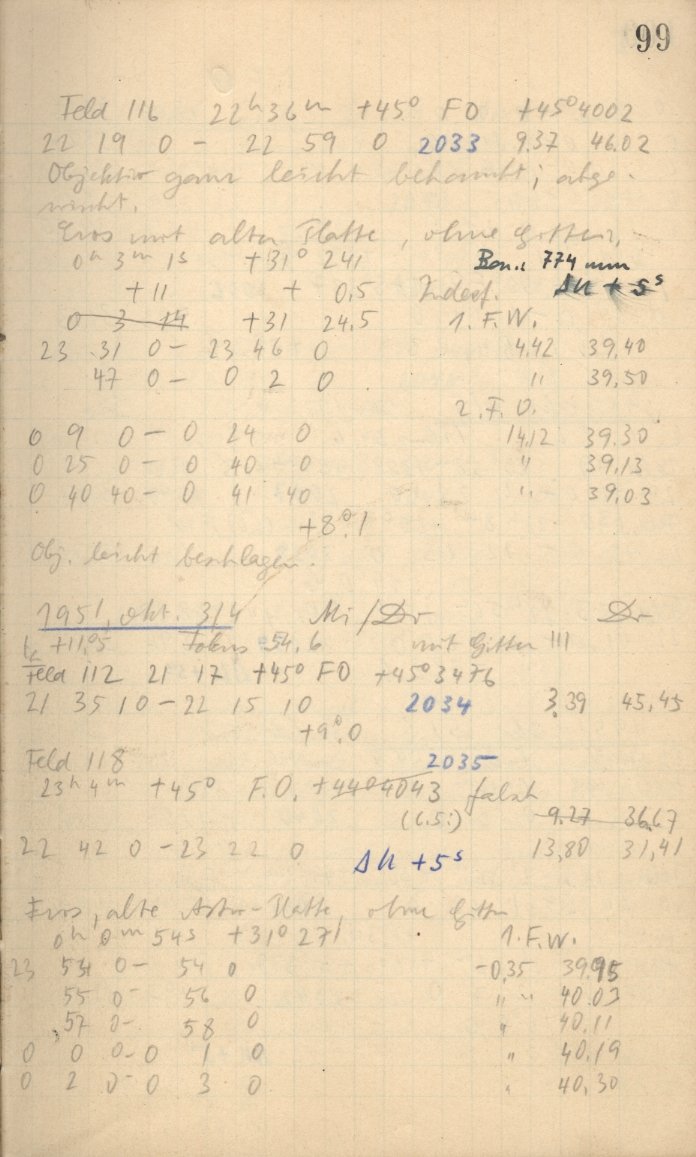 99
Feld 116 22ʰ36ᵐ +45° FO +45°4002
22 19 0 - 22 59 0 2033 9.37 46.02
Objektiv ganz leicht behaucht; abge-
wischt.
Eros mit alter Platte, ohne Gitter,
0ʰ 3ᵐ 1ˢ +31° 24!1 Bar.: 774 mm
+11 + 0.5 Indef. Δu +5ˢ
0 3 14 +31 24.5 1. F.W.
23 31 0 - 23 46 0 4.42 39.40
47 0 - 0 2 0 " 39.50
2. F.O.
0 9 0 - 0 24 0 14.12 39.30
0 25 0 - 0 40 0 " 39.13
0 40 40 - 0 41 40 " 39.03
+8°.1
Obj. leicht beschlagen.
1951, Okt. 3/4 Mi/Dr Dr
+11°5 Fokus 54.6 mit Gitter III
Feld 112 21 17 +45° FO +45°3476
21 35 10 - 22 15 10 2034 3.39 45,45
+9°.0
Feld 118 2035
23ʰ 4ᵐ +45° F.O. +44°4043 falsch
(6.5:) 9.27 36.67
22 42 0 - 23 22 0 Δu +5ˢ 13,80 31,41
Eros, alte Astro-Platte, ohne Gitter
0ʰ 0ᵐ 54ˢ +31° 27!1 1. F.W.
23 53 0 - 54 0 -0,35 39.95
55 0 - 56 0 " " 40.03
57 0 - 58 0 " 40.11
0 0 0 - 0 1 0 " 40.19
0 2 0 - 0 3 0 " 40.30